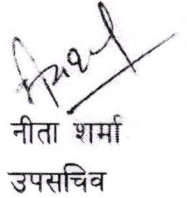 नीता शर्मा
उपसचिव